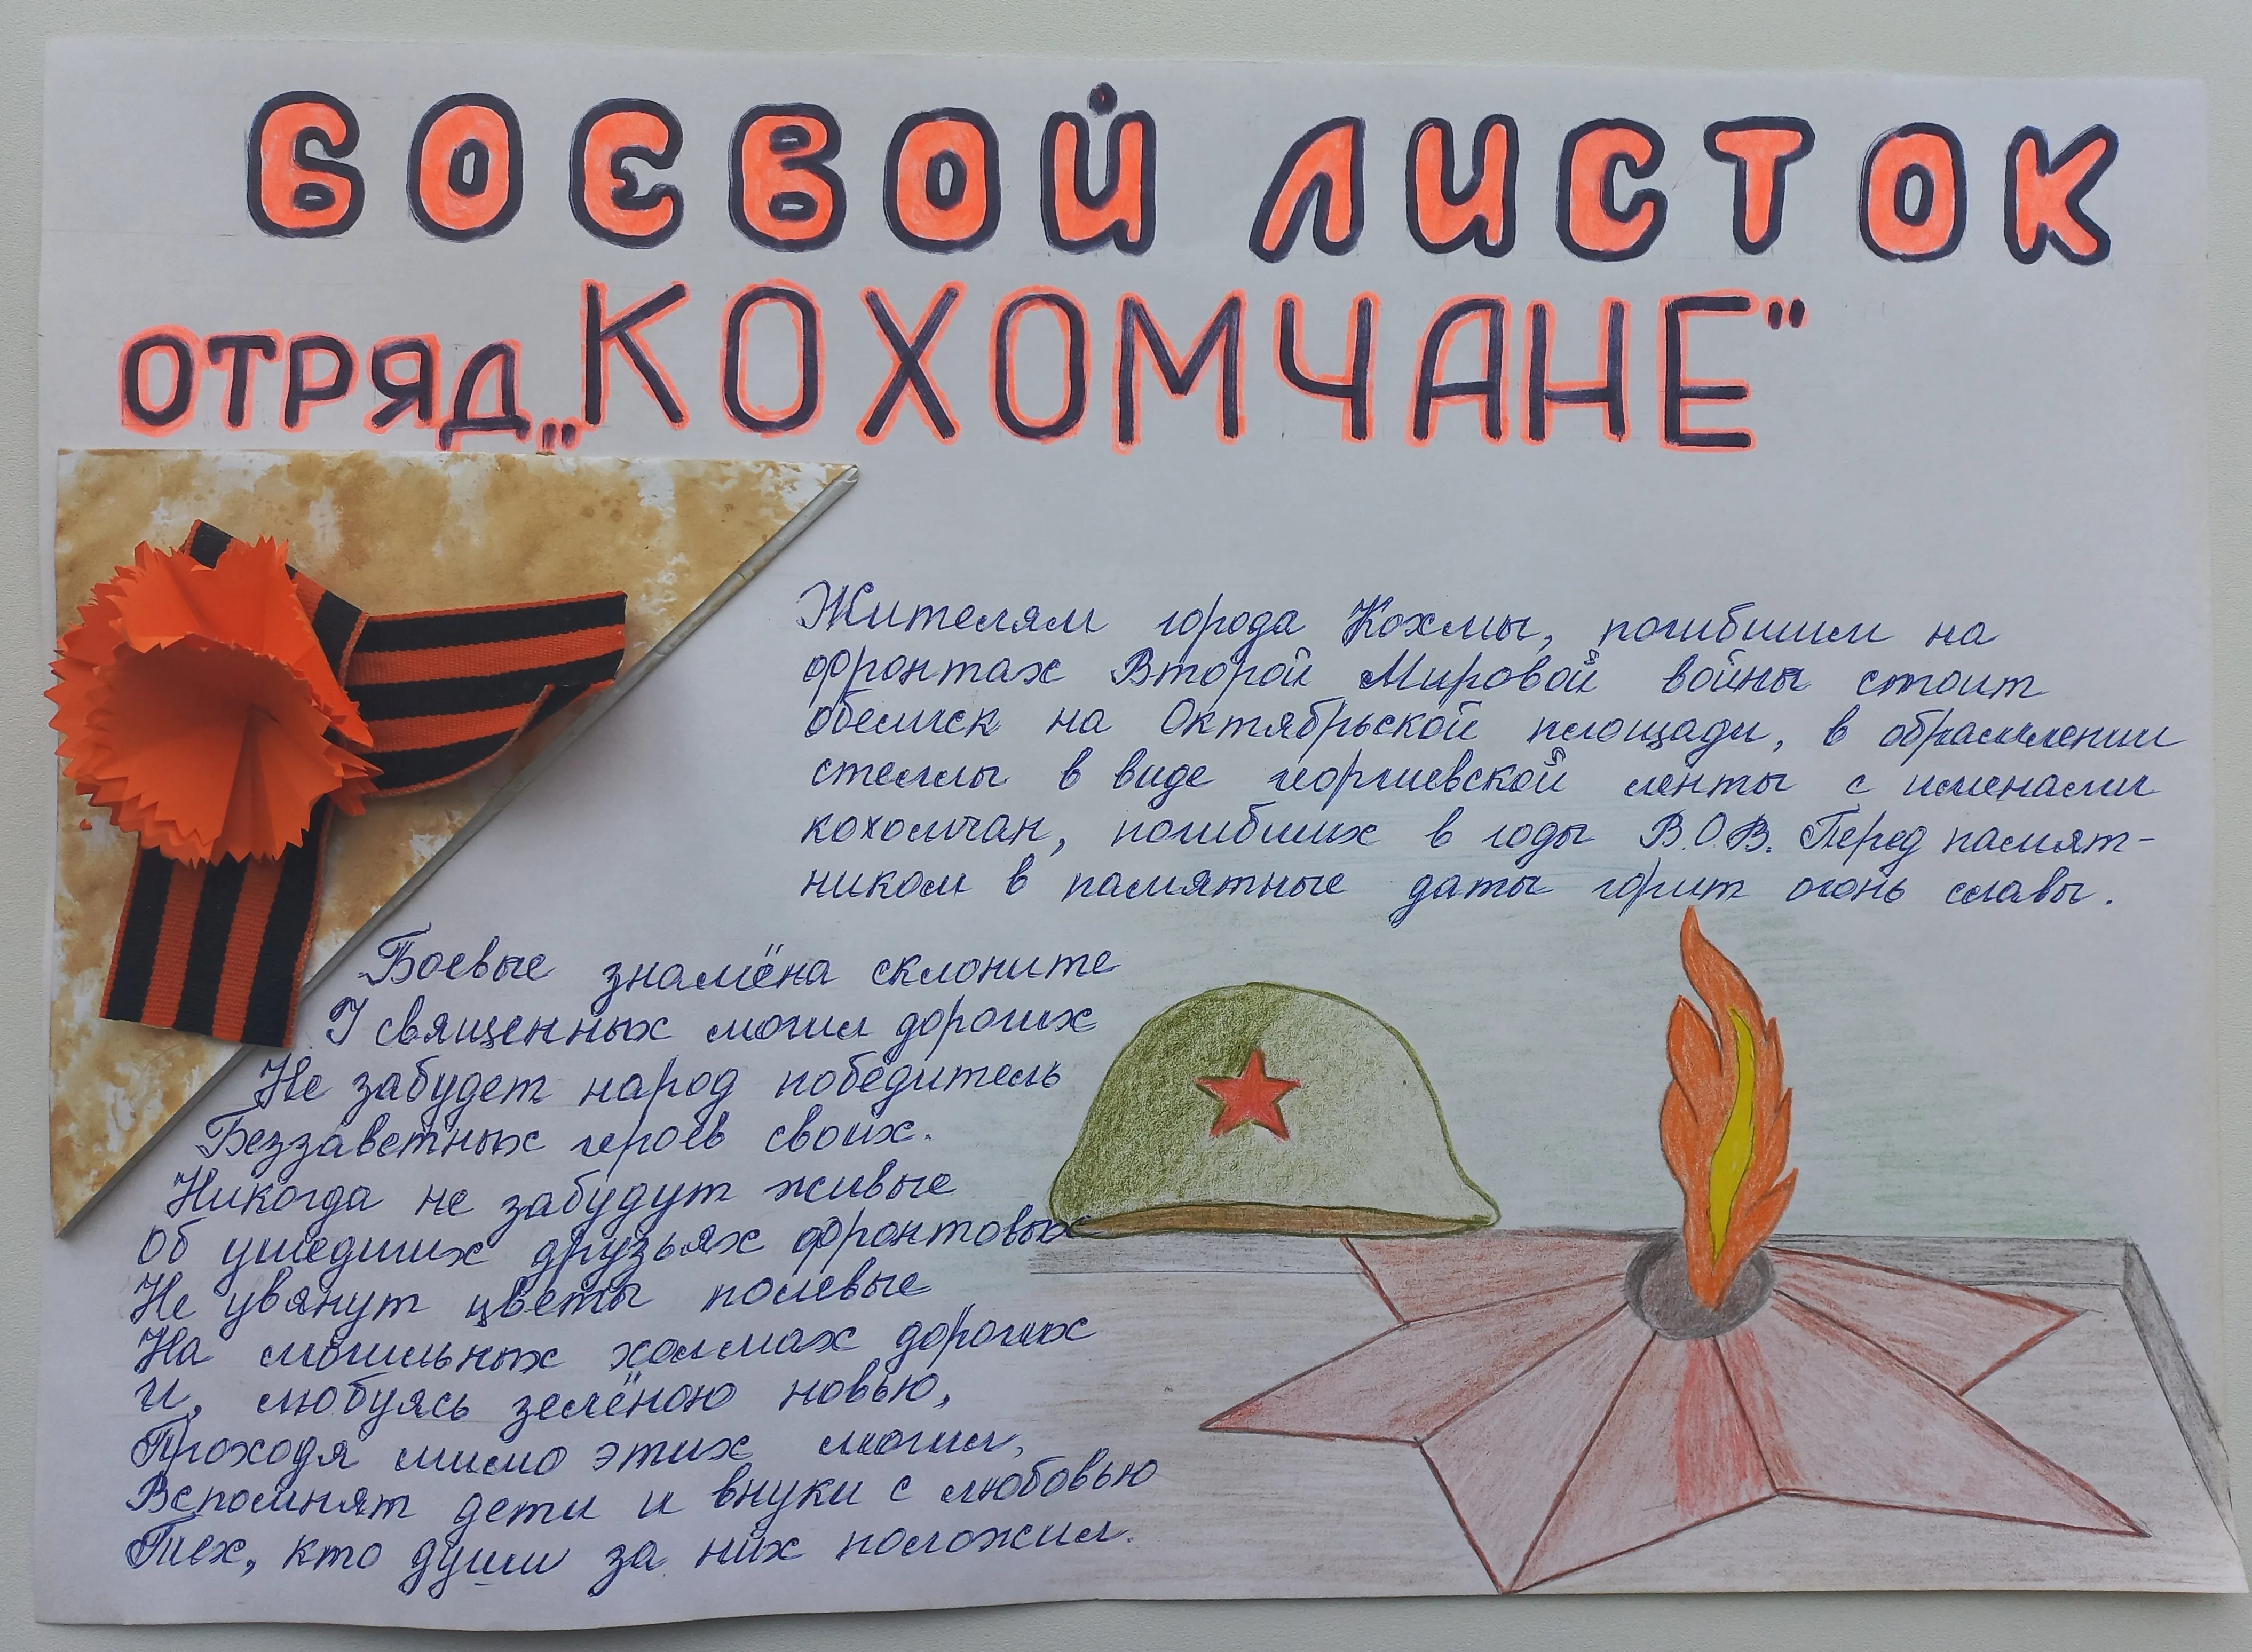 БОЕВОЙ ЛИСТОК
ОТРЯД „КОХОМЧАНЕ"
Жителям города Кохмы, погибшим на
фронтах Второй Мировой войны стоит
обелиск на Октябрьской площади, в обрамлении
стеллы в виде георгиевской ленты с именами
кохомчан, погибших в годы В.О.В. Перед памят-
ником в памятные даты горит огонь славы.
Боевые знамёна склоните
У священных могил дорогих
Не забудет народ победитель
Беззаветных героев своих.
Никогда не забудут живые
Об ушедших друзьях фронтовых
Не увянут цветы полевые
На могильных холмах дорогих
И, любуясь зелёною новью,
Проходя мимо этих могил,
Вспомнят дети и внуки с любовью
Тех, кто души за них положил.